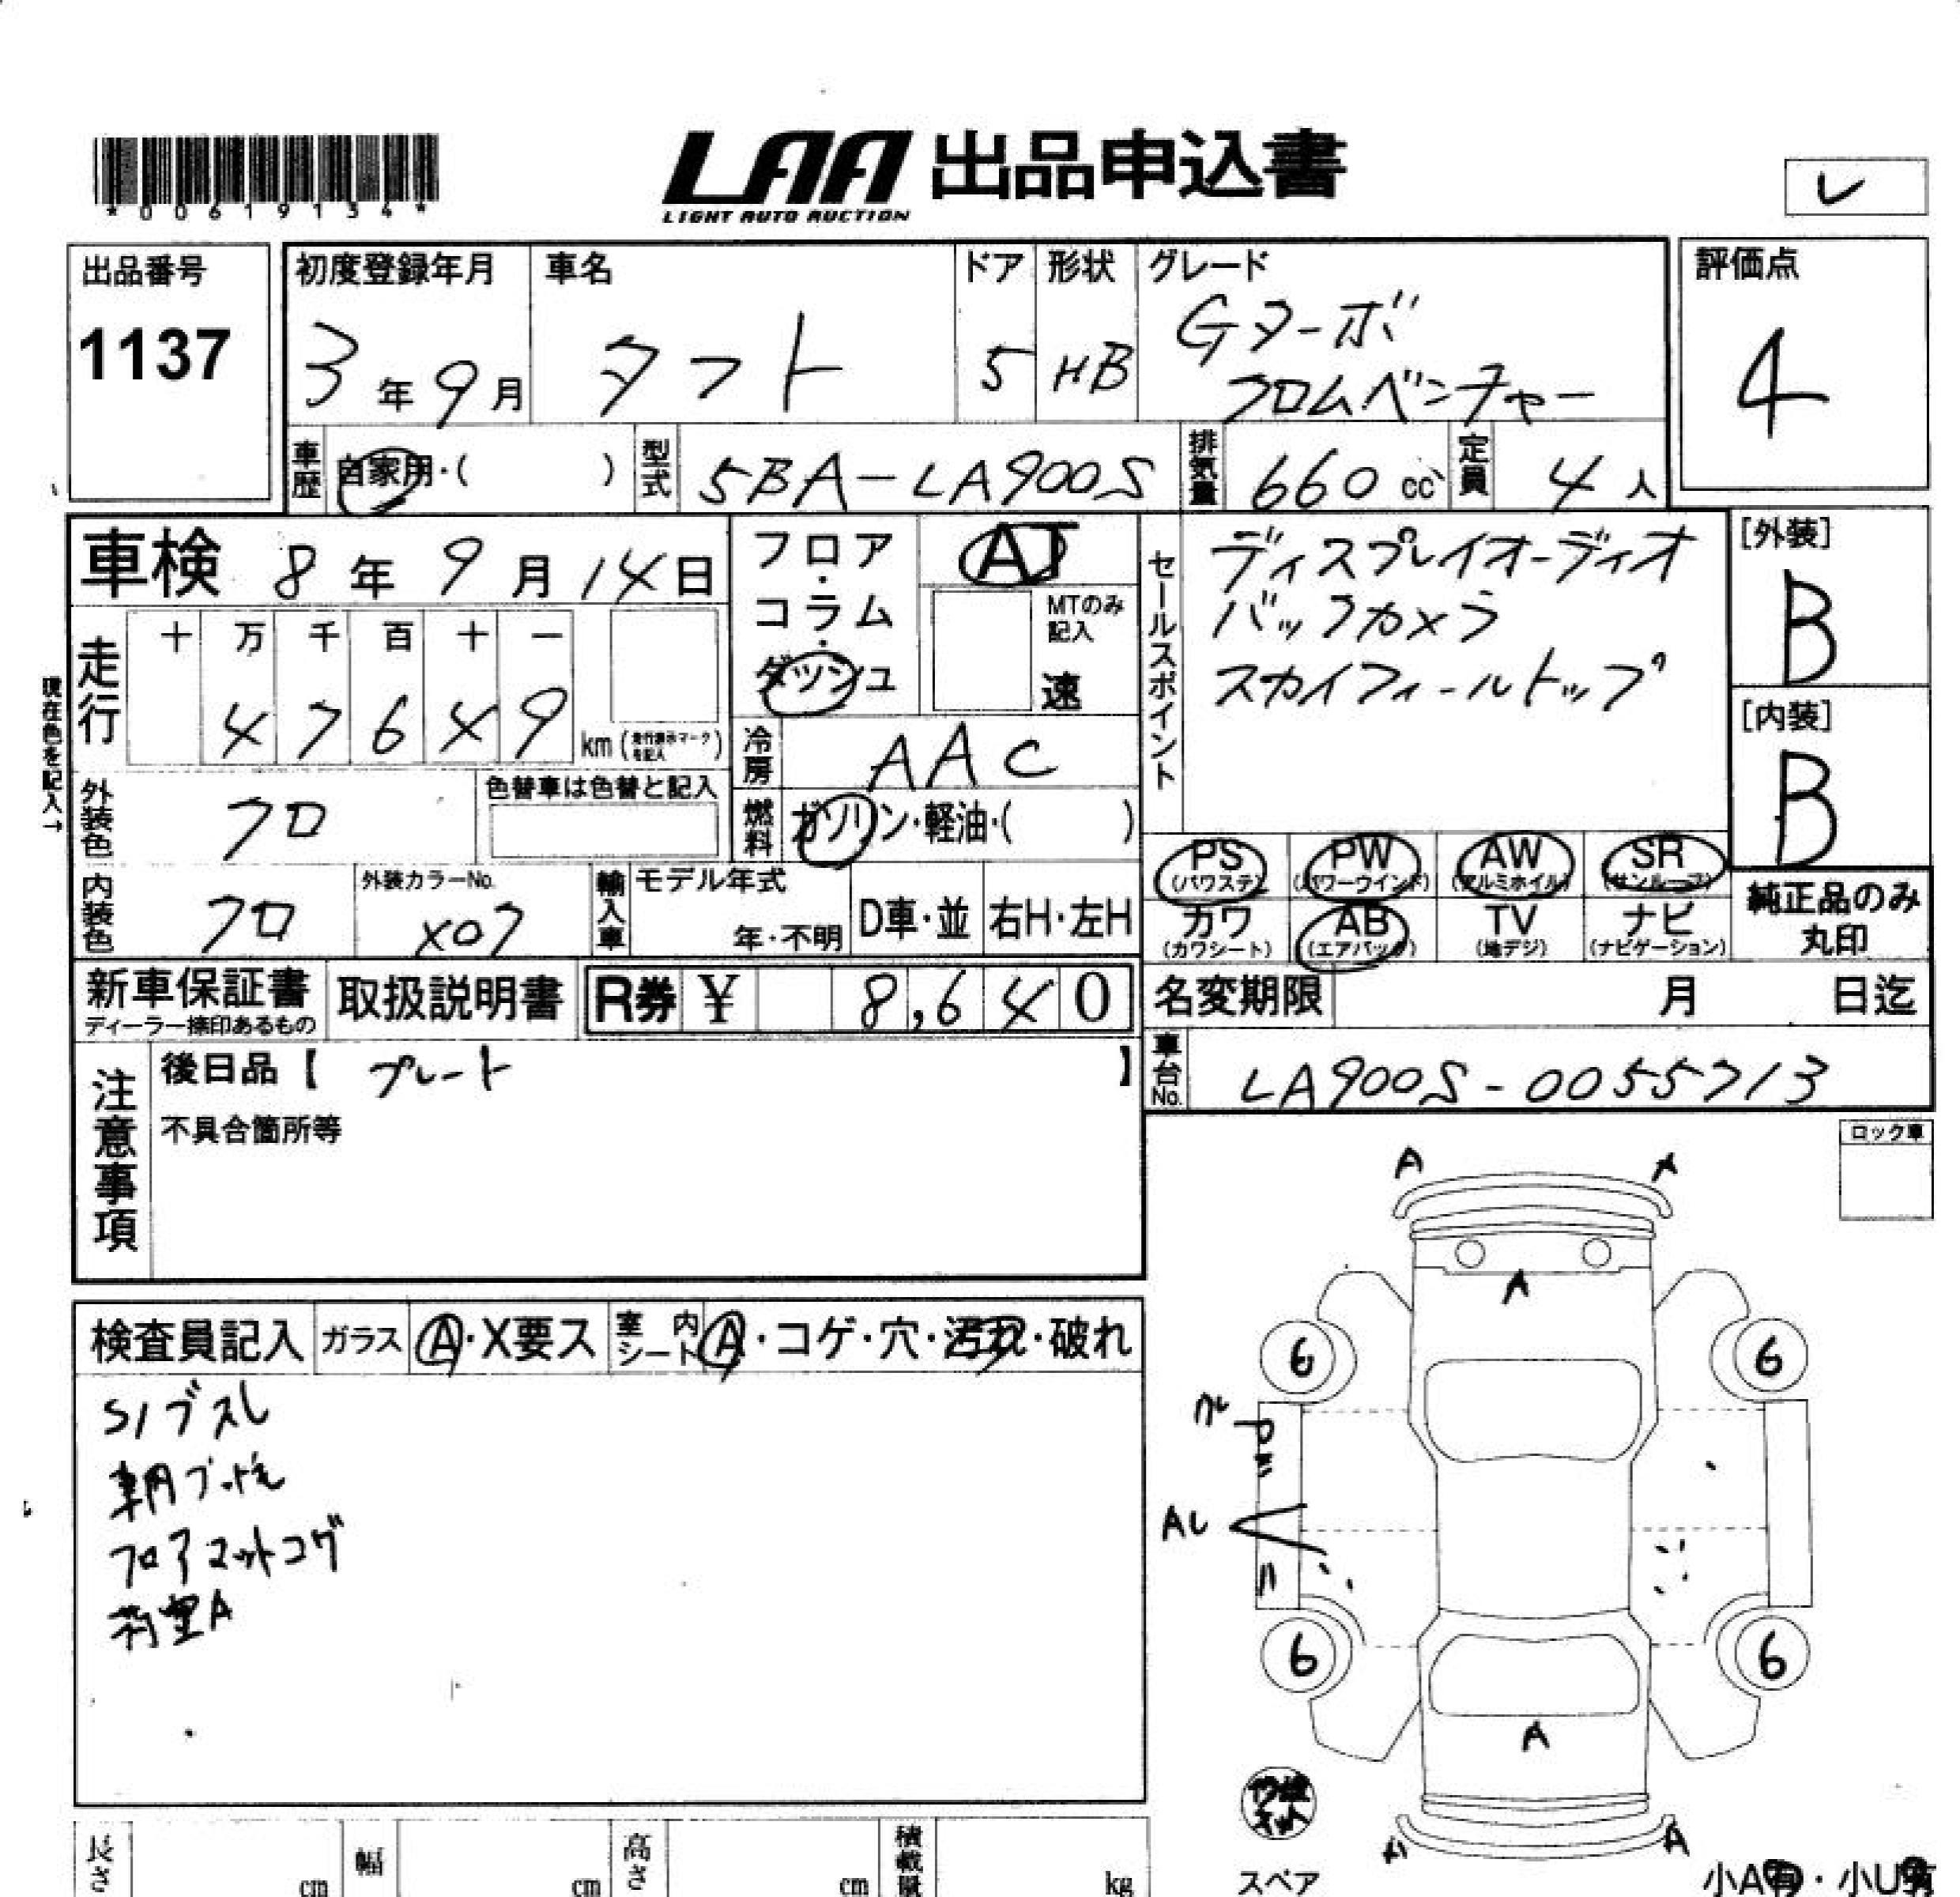 *00619134*
LAA 出品申込書
LIGHT AUTO AUCTION
レ
出品番号
1137
初度登録年月
3年9月
車名
タフト
ドア
5
形状
HB
グレード
Gターボ
クロムベンチャー
評価点
4
車歴
自家用・( )
型式
5BA-LA900S
排気量
660cc
定員
4人
車検 8年9月14日
フロア・コラム・ダッシュ
AT
MTのみ記入
速
セールスポイント
ディスプレイオーディオ
バックカメラ
スカイフィールトップ
[外装]
B
[内装]
B
現在色を記入→
走行
十 万 千 百 十 一
4 7 6 4 9
km(走行表示マークを記入)
冷房
AAC
外装色
クロ
色替車は色替と記入
燃料
ガソリン・軽油・( )
PS (パワステ)
PW (パワーウインド)
AW (アルミホイル)
SR (サンルーフ)
カワ (カワシート)
AB (エアバック)
TV (地デジ)
ナビ (ナビゲーション)
純正品のみ丸印
内装色
クロ
外装カラーNo.
X07
輸入車
モデル年式
年・不明
D車・並
右H・左H
新車保証書
ディーラー捺印あるもの
取扱説明書
R券 ¥ 8,640
名変期限 月 日迄
注意事項
後日品【 プレート 】
不具合箇所等
車台No.
LA900S-0055713
ロック車
検査員記入
ガラス
A・X要ス
室内シート
A・コゲ・穴・汚れ・破れ
フロアマットコゲ
A A
A
6 6
AL
6 6
A
A
スペア
小A有・小U有
長さ cm
幅 cm
高さ cm
積載量 kg